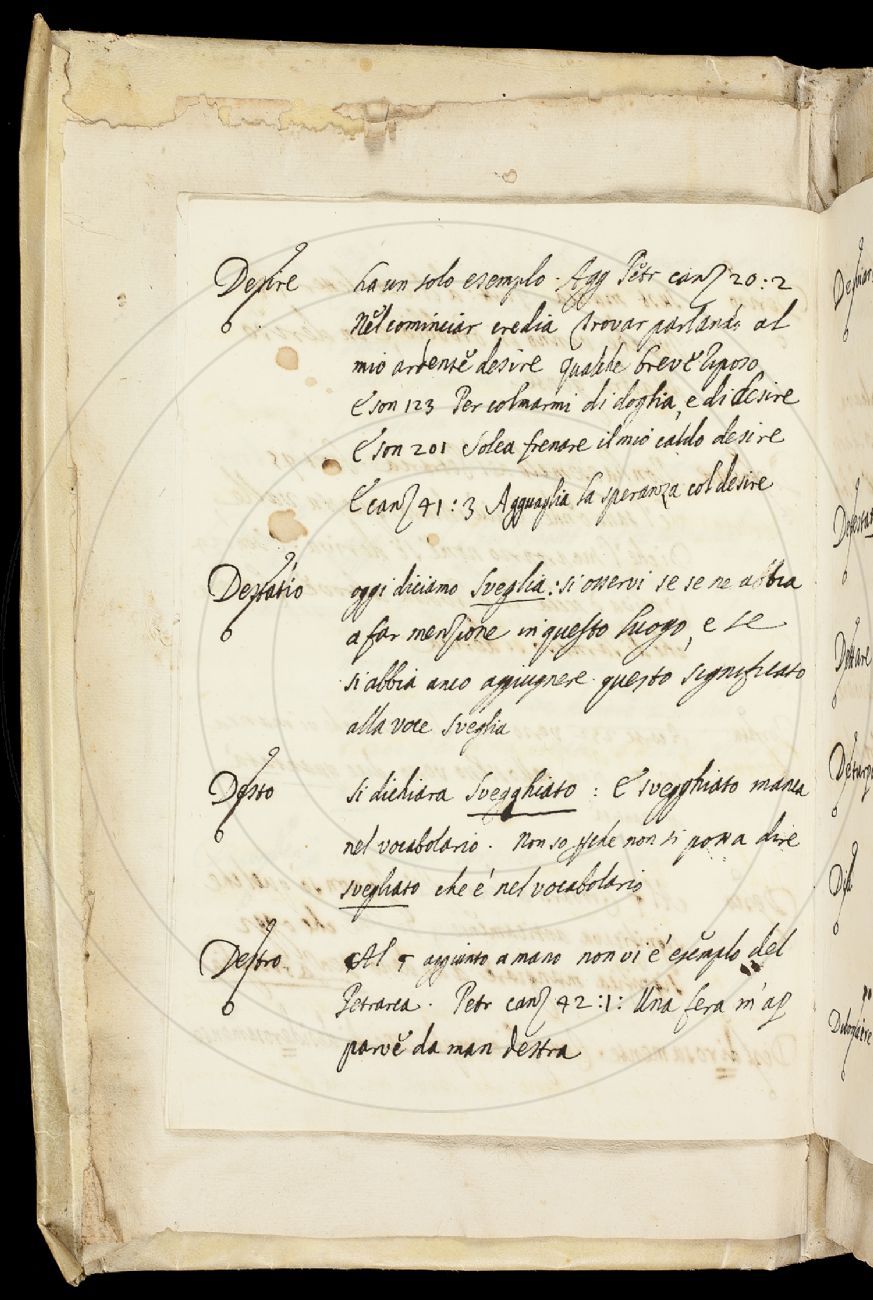 Desire ha un solo esempio. Agg Petr canz 20:2
Nel cominciar credia trovar parlando al
mio ardente desire qualche breve riposo
E son 123 Per colmarmi di doglia, e di desire
E son 201 Solea frenare il mio caldo desire
E canz 41:3 Agguaglia la speranza col desire
Destatio oggi diciamo Sveglia: si osservi se se ne abbia
a far menzione in questo luogo, e se
si abbia anco aggiugnere questo significato
alla voce Sveglia
Desto si dichiara Svegghiato: E svegghiato manca
nel vocabolario. Non so se non si possa dire
svegliato che è nel vocabolario
Destro Al aggiunto a mano non vi è esempio del
Petrarca. Petr canz 42:1: Una fera m'ap
parve da man destra
Destare